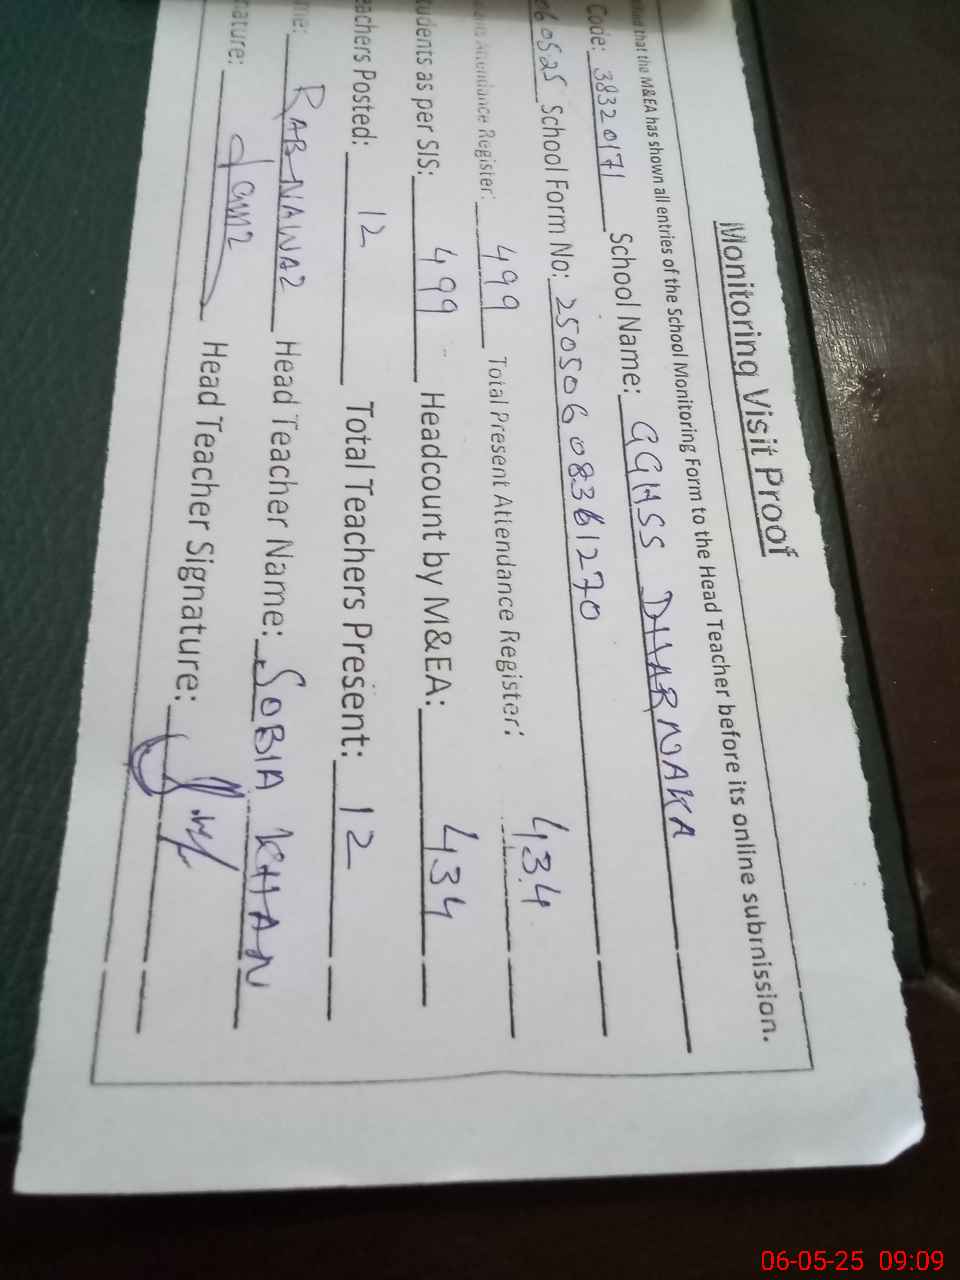 Monitoring Visit Proof
that the M&EA has shown all entries of the School Monitoring Form to the Head Teacher before its online submission.
Code: 38320171 School Name: GGHSS DHARNAKA
060525 School Form No: 25050608361270
Attendance Register: 499 Total Present Attendance Register: 434
tudents as per SIS: 499 Headcount by M&EA: 434
eachers Posted: 12 Total Teachers Present: 12
me: RAB NAWAZ Head Teacher Name: SOBIA KHAN
nature: Head Teacher Signature:
06-05-25 09:09